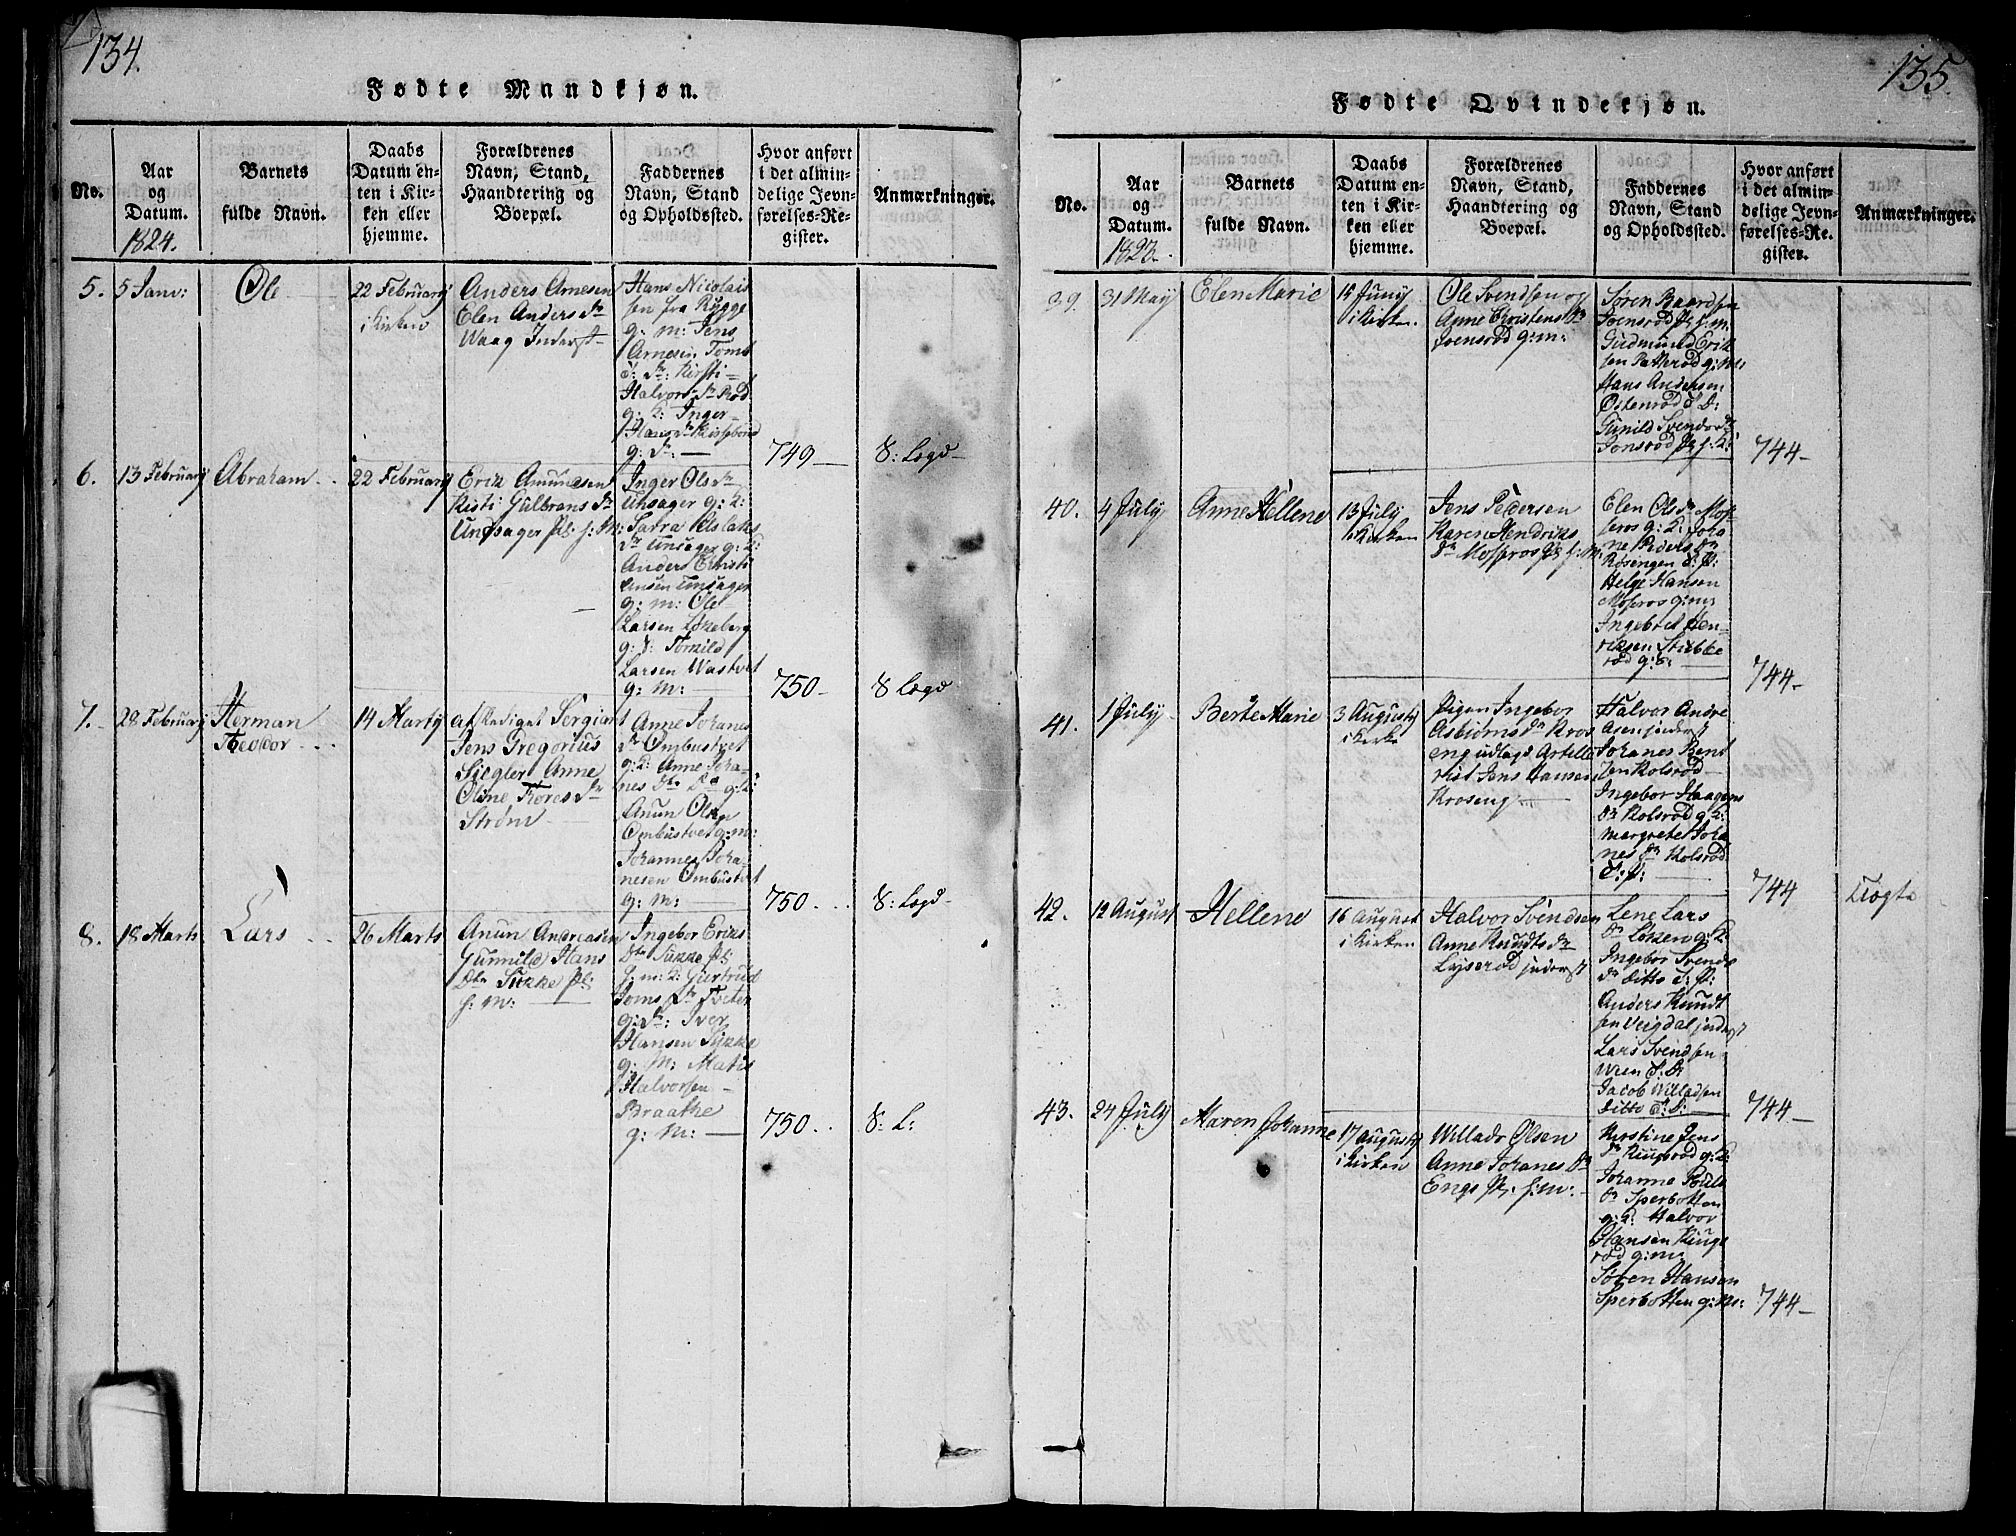 134.
Fødte Mandkjøn.
No.
Aar
og
Datum.
1824.
Barnets
fulde Navn.
Daabs
Datum en-
ten i Kir-
ken eller
hjemme.
Forældrenes
Navn, Stand,
Haandtering og
Boepæl.
Faddernes
Navn, Stand
og Opholdssted.
Hvor anført
i det almin-
delige Jevn-
førelses-Re-
gister.
Anmærkninger.
5.
5 Janv:
Ole
22 Februarij
i Kirken
Anders Arnesen
Elen Anders Dr
Waag Inderst
Hans Nicolais
sen fra Rygge
g: m: Jens
Arnesen Tomb
Kirsti
Halvors Dr Rød
g: K: Inger
Hans Dr
749
8: Lægd
6.
13 Februarij
Abraham
22 Februarij
Erik Amundsen
Kisti Gulbrans Dr
Undsager Pl: f: M:
Inger Ols Dr
Unsager g: K:
Sarra Aslaks
Dr Unsager g: K:
Anders Christi
ansen Unsager
g: m: Ole
Larsen Løkeberg
g: Tomild
Larsen Wastvet
g: m:
750
8 Lægd
7.
28 Februarij
Herman
Theodor
14 Martij
afskediget Sergiant
Jens Gregorius
Siegler Anne
Oline Thores Dr
Strøm
Anne Johanes
Dr Ombustvet
g: K: Anne Joha-
nes Dtr g: K:
Anun Olsen
Ombustvet g: m:
Johannes Joha-
nesen Ombustvet
g: m:
750
8: Lægd
8.
18 Marts
Lars
26 Marts
Anun Andreasen
Gunnild Hans
Dtr Sikke Pl:
f: M:
Ingebor Eriks
Dtr Sikke Pl:
f: m: K: Giertrud
Joms Dr Tveter
Iver
Hansen Sikke
g: M: Matis
Halvorsen
Braatke
g: M:
750
8: L:
135.
Fødte Qvindekjøn.
No.
Aar
og
Datum.
1823.
Barnets
fulde Navn.
Daabs
Datum en-
ten i Kir-
ken eller
hjemme.
Forældrenes
Navn, Stand,
Haandtering og
Boepæl.
Faddernes
Navn, Stand
og Opholdssted.
Hvor anført
i det almin-
delige Jevn-
førelses-Re-
gister.
Anmærkninger.
39.
31 Maij
Elen Marie
15 Junij
i Kirken.
Ole Svendsen og
Anne Christens Dr
Svensrød g: m:
Søren Baardsen
Svensrød Pl: f: m:
Gudmund Erik
sen g: m:
Hans Andersen
Østenrød
Gunild Svends Dr
Jonsrød Pl: f: K:
744
40.
4 Julij
Anne Hellene
13 Julij
i Kirken
Jens Pedersen
Karen Hendriks
Dr Mosseros Pl: f: M:
Elen Ols Dr Mos
seros g: K: Joha
ne Peders Dr
Rosengen
Helge Hansen
Mosseros g: m:
Ingebret Hen-
riksen Stubbe
rød
744
41.
1 Julij
Berte Marie
3 Augustij
i Kirke
Pigen Ingebor
Asbiørns Dr Kros
eng udlagd Artille
rist Jens Hansen
Kroseng
Halvor Andre
asen inderst
Johanes Bent
sen Kolsrød
Ingebor Haagens
Dr Kolsrød g: K:
Margrete Joha
nes Dr Kolsrød
744
Uægte
42.
12 August
Hellene
16 August
i Kirken
Halvor Svendsen
Anne Knudts Dr
Lyserød inderst
Lene Lars
Dr Løken g: K:
Ingebor Svends
Dr ditto
Anders Knudt
sen Veigdal inderst
Lars Svendsen
Wien
Jacob Willadsen
ditto
744
43.
24 Julij
Maren Johanne
17 Augustij
i Kirken
Willads Olsen
Anne Johanes Dr
Enge Pl: f: m:
Kirstine Jens
Dr g: K:
Johanne Pouls
Dr Sperbotten
g: K: Halvor
Hansen
rød g: m:
Søren Hansen
Sperbotten g: m:
744